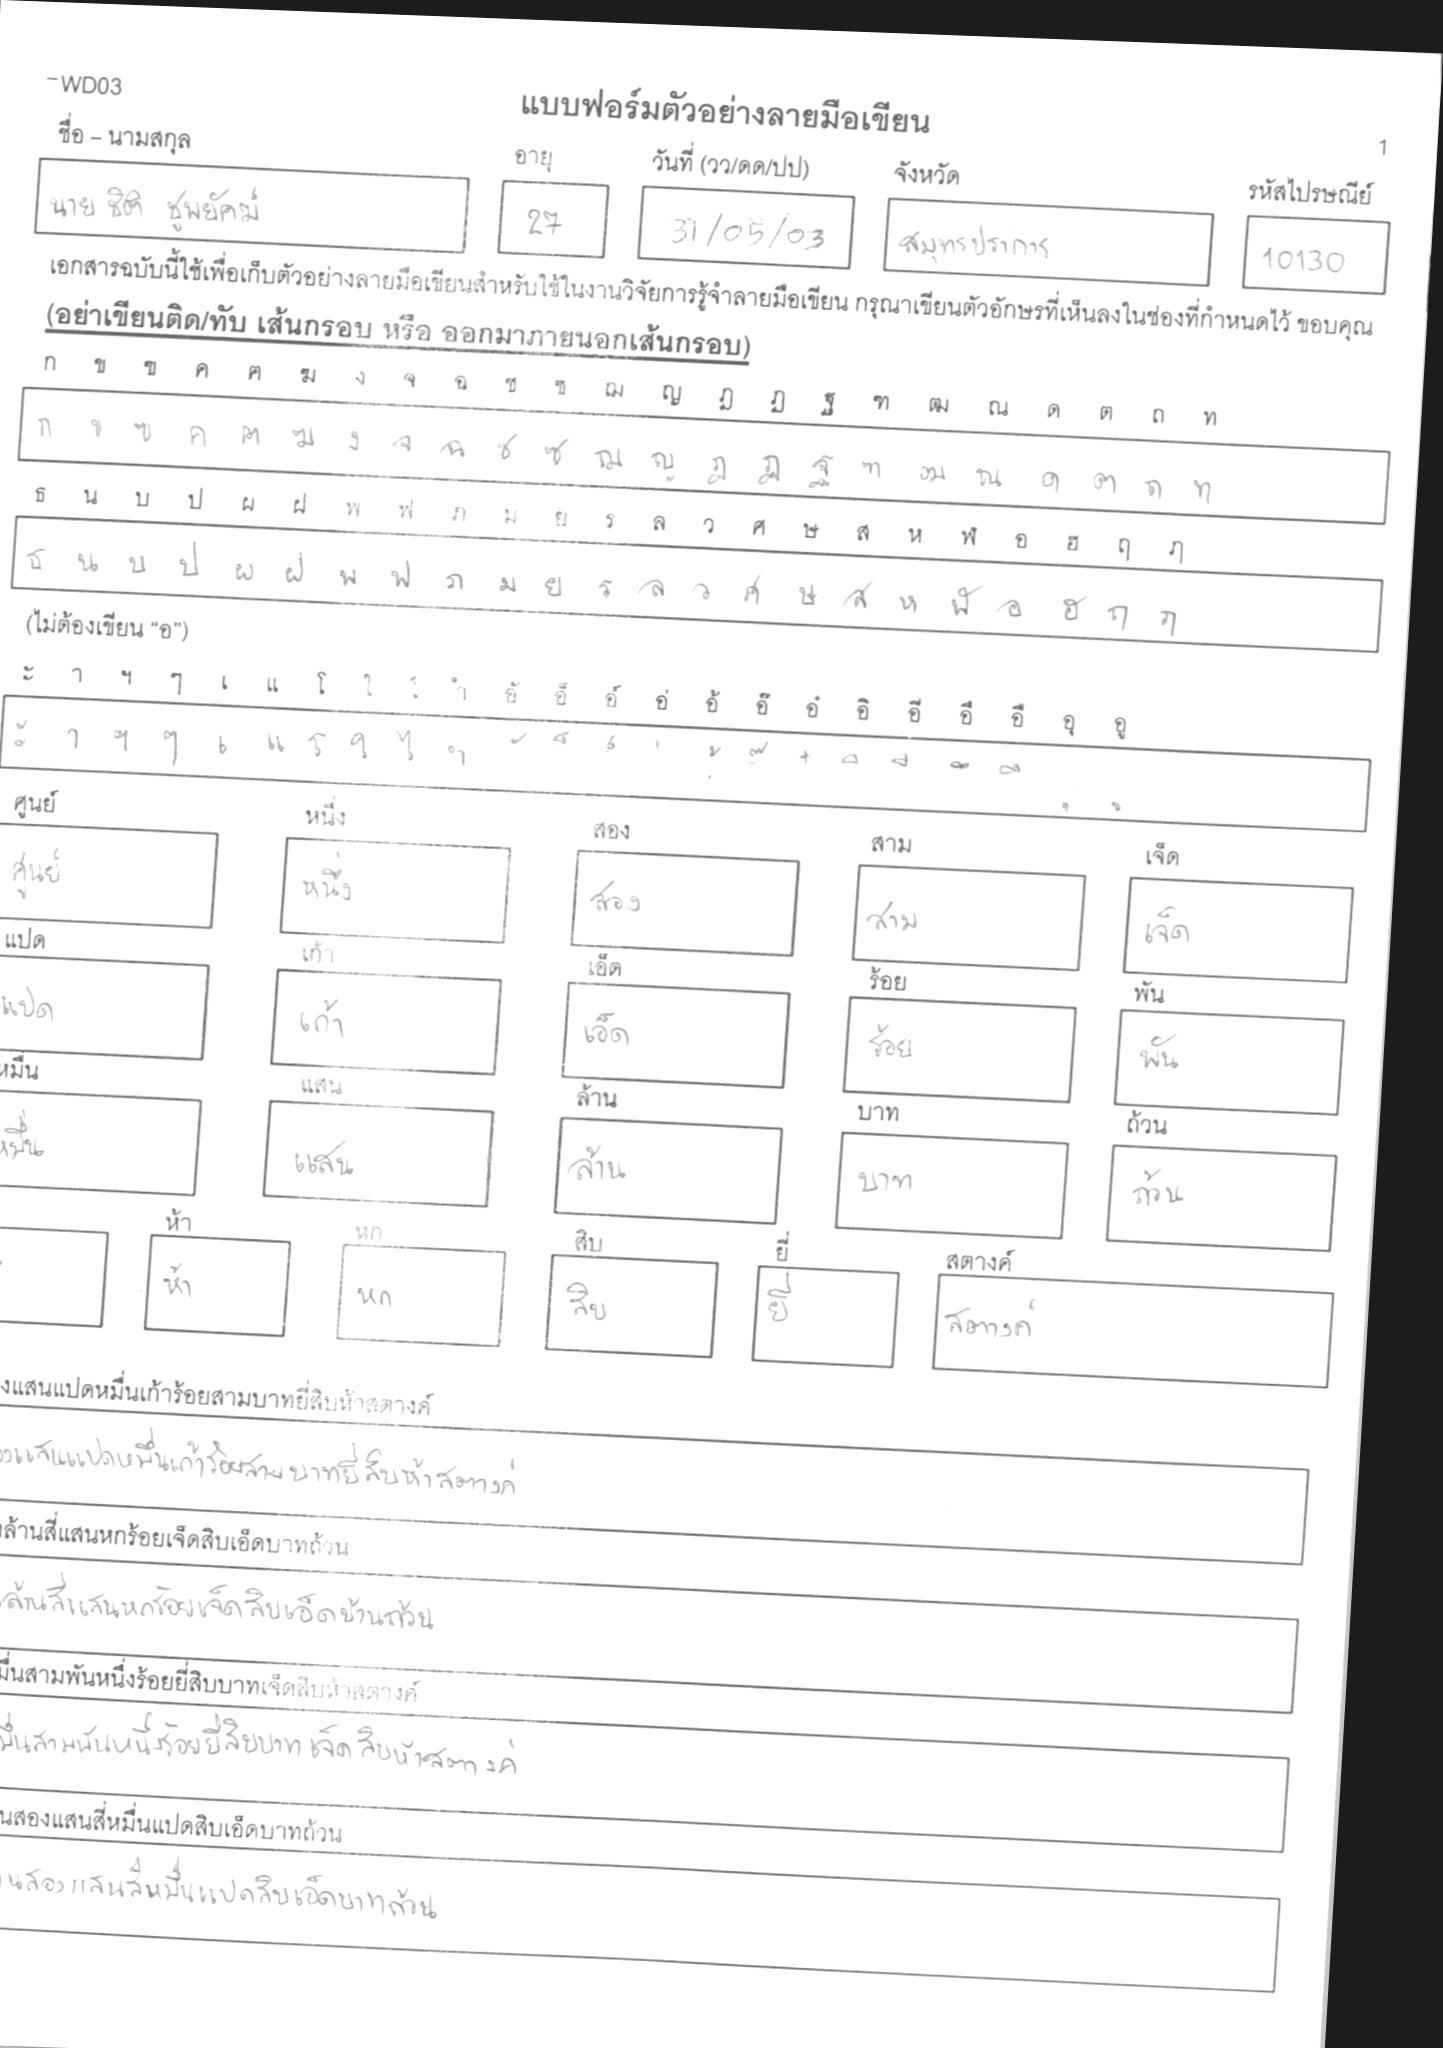 WD03
แบบฟอร์มตัวอย่างลายมือเขียน
1
ชื่อ – นามสกุล อายุ วันที่ (วว/ดด/ปป) จังหวัด รหัสไปรษณีย์
นาย 27 31/05/03 สมุทรปราการ 10130
เอกสารฉบับนี้ใช้เพื่อเก็บตัวอย่างลายมือเขียนสำหรับใช้ในงานวิจัยการรู้จำลายมือเขียน กรุณาเขียนตัวอักษรที่เห็นลงในช่องที่กำหนดไว้ ขอบคุณ
(อย่าเขียนติด/ทับ เส้นกรอบ หรือ ออกมาภายนอกเส้นกรอบ)
ก ข ฃ ค ฅ ฆ ง จ ฉ ช ซ ฌ ญ ฎ ฏ ฐ ฑ ฒ ณ ด ต ถ ท
ก ข ฃ ค ฅ ฆ ง จ ฉ ช ซ ฌ ญ ฎ ฏ ฐ ฑ ฒ ณ ด ต ถ ท
ธ น บ ป ผ ฝ พ ฟ ภ ม ย ร ล ว ศ ษ ส ห ฬ อ ฮ ฤ ฦ
ธ น บ ป ผ ฝ พ ฟ ภ ม ย ร ล ว ศ ษ ส ห ฬ อ ฮ ฤ ฦ
(ไม่ต้องเขียน “อ”)
ะ า ฯ ๆ เ แ โ ใ ไ ำ อั อ็ อ์ อ่ อ้ อ๊ อ๋ อิ อี อึ อื อุ อู
ะ า ฯ ๆ เ แ โ ใ ไ ำ ั ็ ์ ่ ้ ๊ ๋ ิ ี ึ ื ุ ู
ศูนย์ หนึ่ง สอง สาม เจ็ด
ศูนย์ หนึ่ง สอง สาม เจ็ด
แปด เก้า เอ็ด ร้อย พัน
แปด เก้า เอ็ด ร้อย พัน
หมื่น แสน ล้าน บาท ถ้วน
หมื่น แสน ล้าน บาท ถ้วน
ห้า หก สิบ ยี่ สตางค์
ห้า หก สิบ ยี่ สตางค์
งแสนแปดหมื่นเก้าร้อยสามบาทยี่สิบห้าสตางค์
องแสนแปดหมื่นเก้าร้อยสามบาทยี่สิบห้าสตางค์
งล้านสี่แสนหกร้อยเจ็ดสิบเอ็ดบาทถ้วน
ล้านสี่แสนหกร้อยเจ็ดสิบเอ็ดบ้านถ้วน
มื่นสามพันหนึ่งร้อยยี่สิบบาทเจ็ดสิบห้าสตางค์
มื่นสามพันหนึ่งร้อยยี่สิบบาทเจ็ดสิบห้าสตางค์
นสองแสนสี่หมื่นแปดสิบเอ็ดบาทถ้วน
านสองแสนสี่หมื่นแปดสิบเอ็ดบาทถ้วน